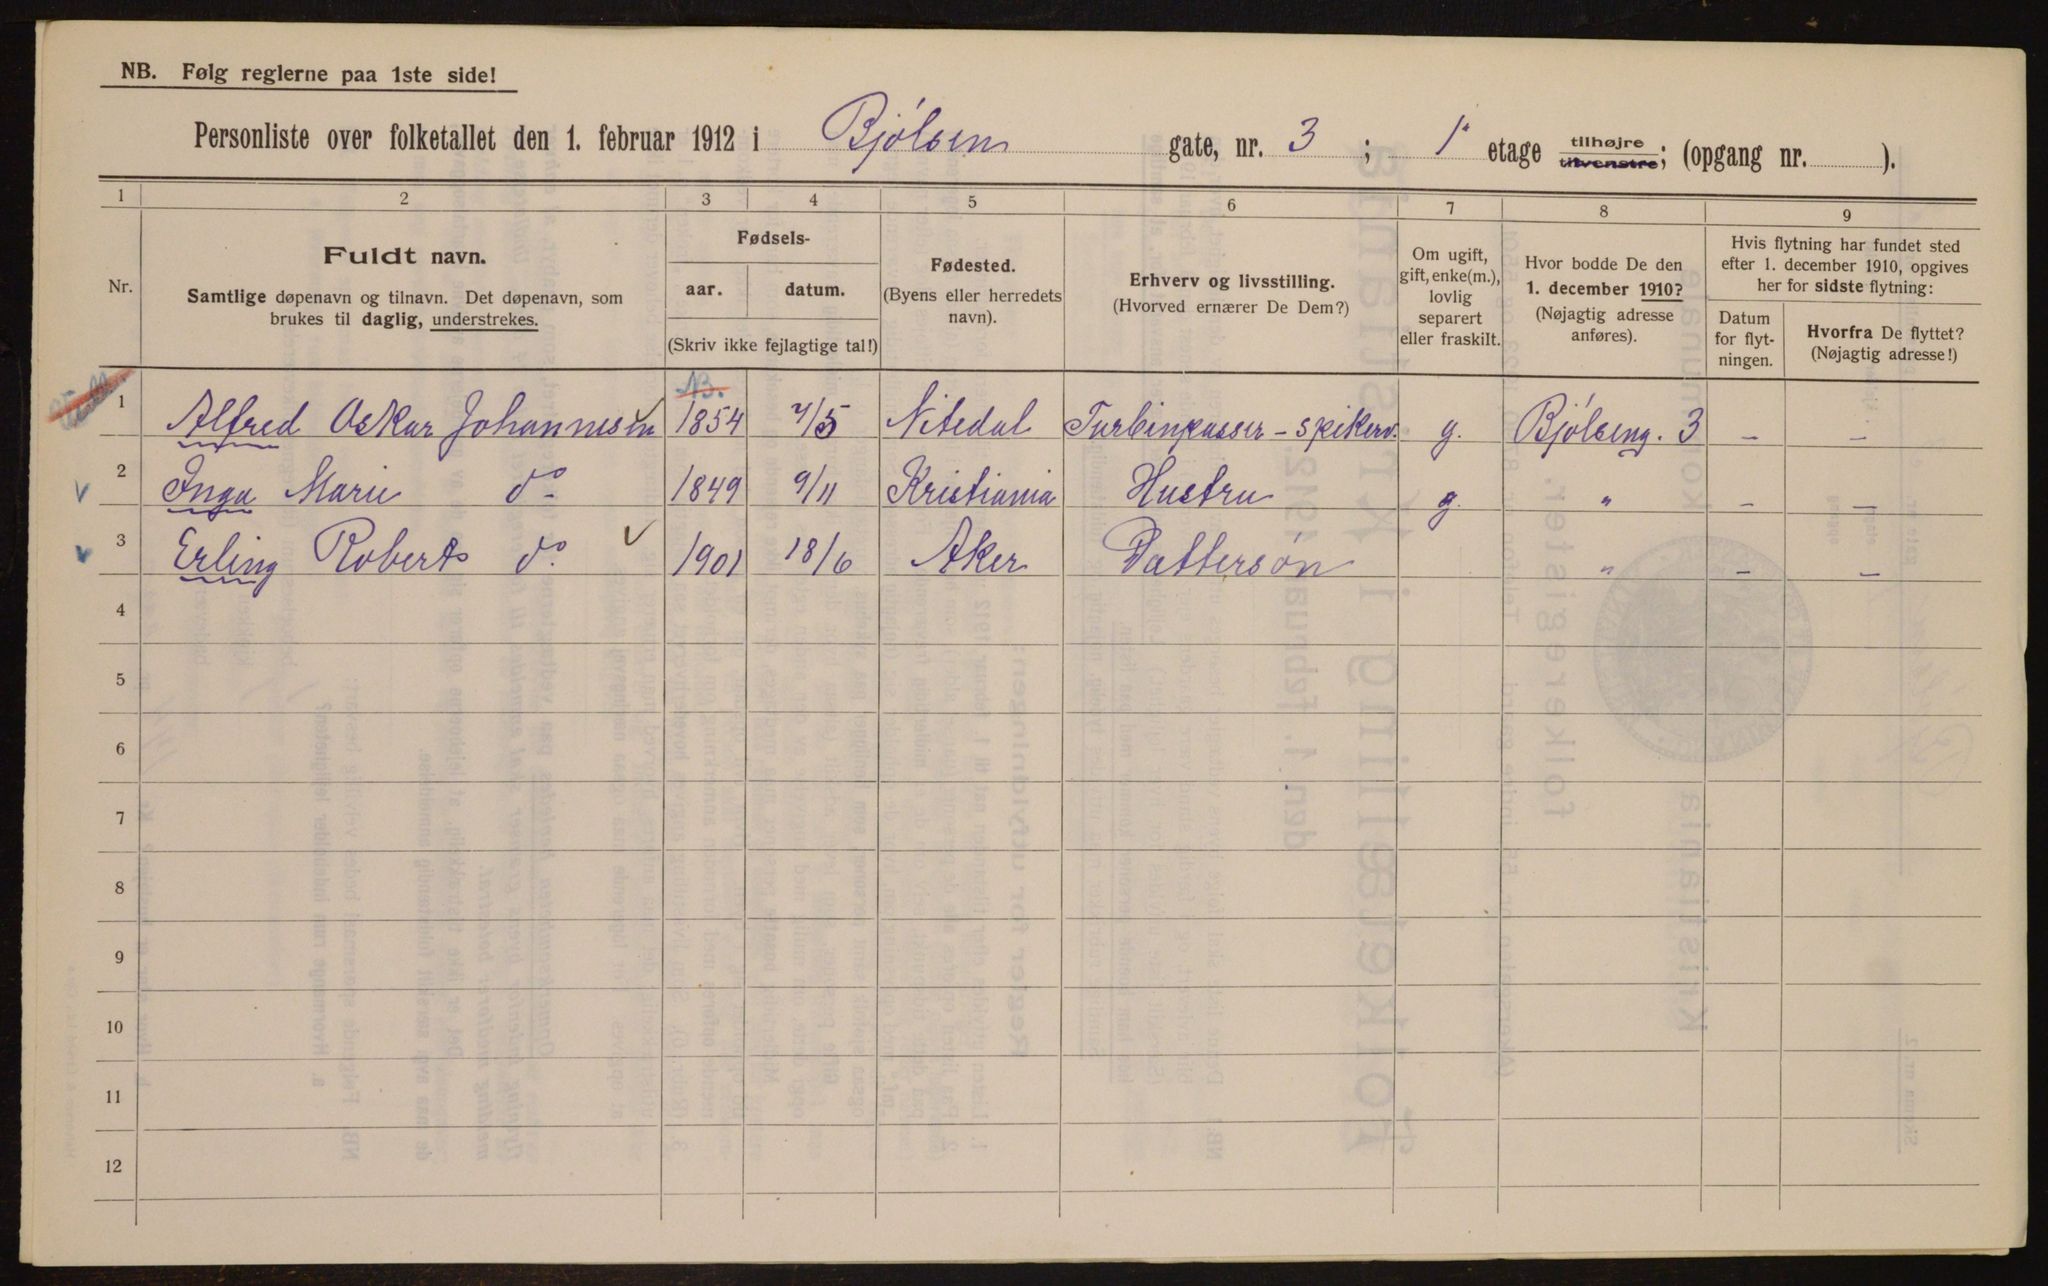 NB. Følg reglerne paa 1ste side!
Personliste over folketallet den 1. februar 1912 i Bjølsen gate, nr. 3 ; 1' etage tilhøjre tilvenstre; (opgang nr. ).
1 2 3 4 5 6 7 8 9
Nr.
Fuldt navn.
Samtlige døpenavn og tilnavn. Det døpenavn, som
brukes til daglig, understrekes.
Fødsels-
aar. datum.
(Skriv ikke fejlagtige tal!)
Fødested.
(Byens eller herredets
navn).
Erhverv og livsstilling.
(Hvorved ernærer De Dem?)
Om ugift,
gift, enke(m.),
lovlig
separert
eller fraskilt.
Hvor bodde De den
1. december 1910?
(Nøjagtig adresse
anføres).
Hvis flytning har fundet sted
efter 1. december 1910, opgives
her for sidste flytning:
Datum
for flyt-
ningen.
Hvorfra De flyttet?
(Nøjagtig adresse!)
NB.
1 Alfred Oskar Johannesen 1854 7/5 Nitedal Turbinpasser - spikerv. g. Bjølseng. 3 – –
2 Inga Marie do- 1849 9/11 Kristiania Hustru g. " – –
3 Erling Roberts do. 1901 18/6 Aker Dattersøn " – –
4
5
6
7
8
9
10
11
12